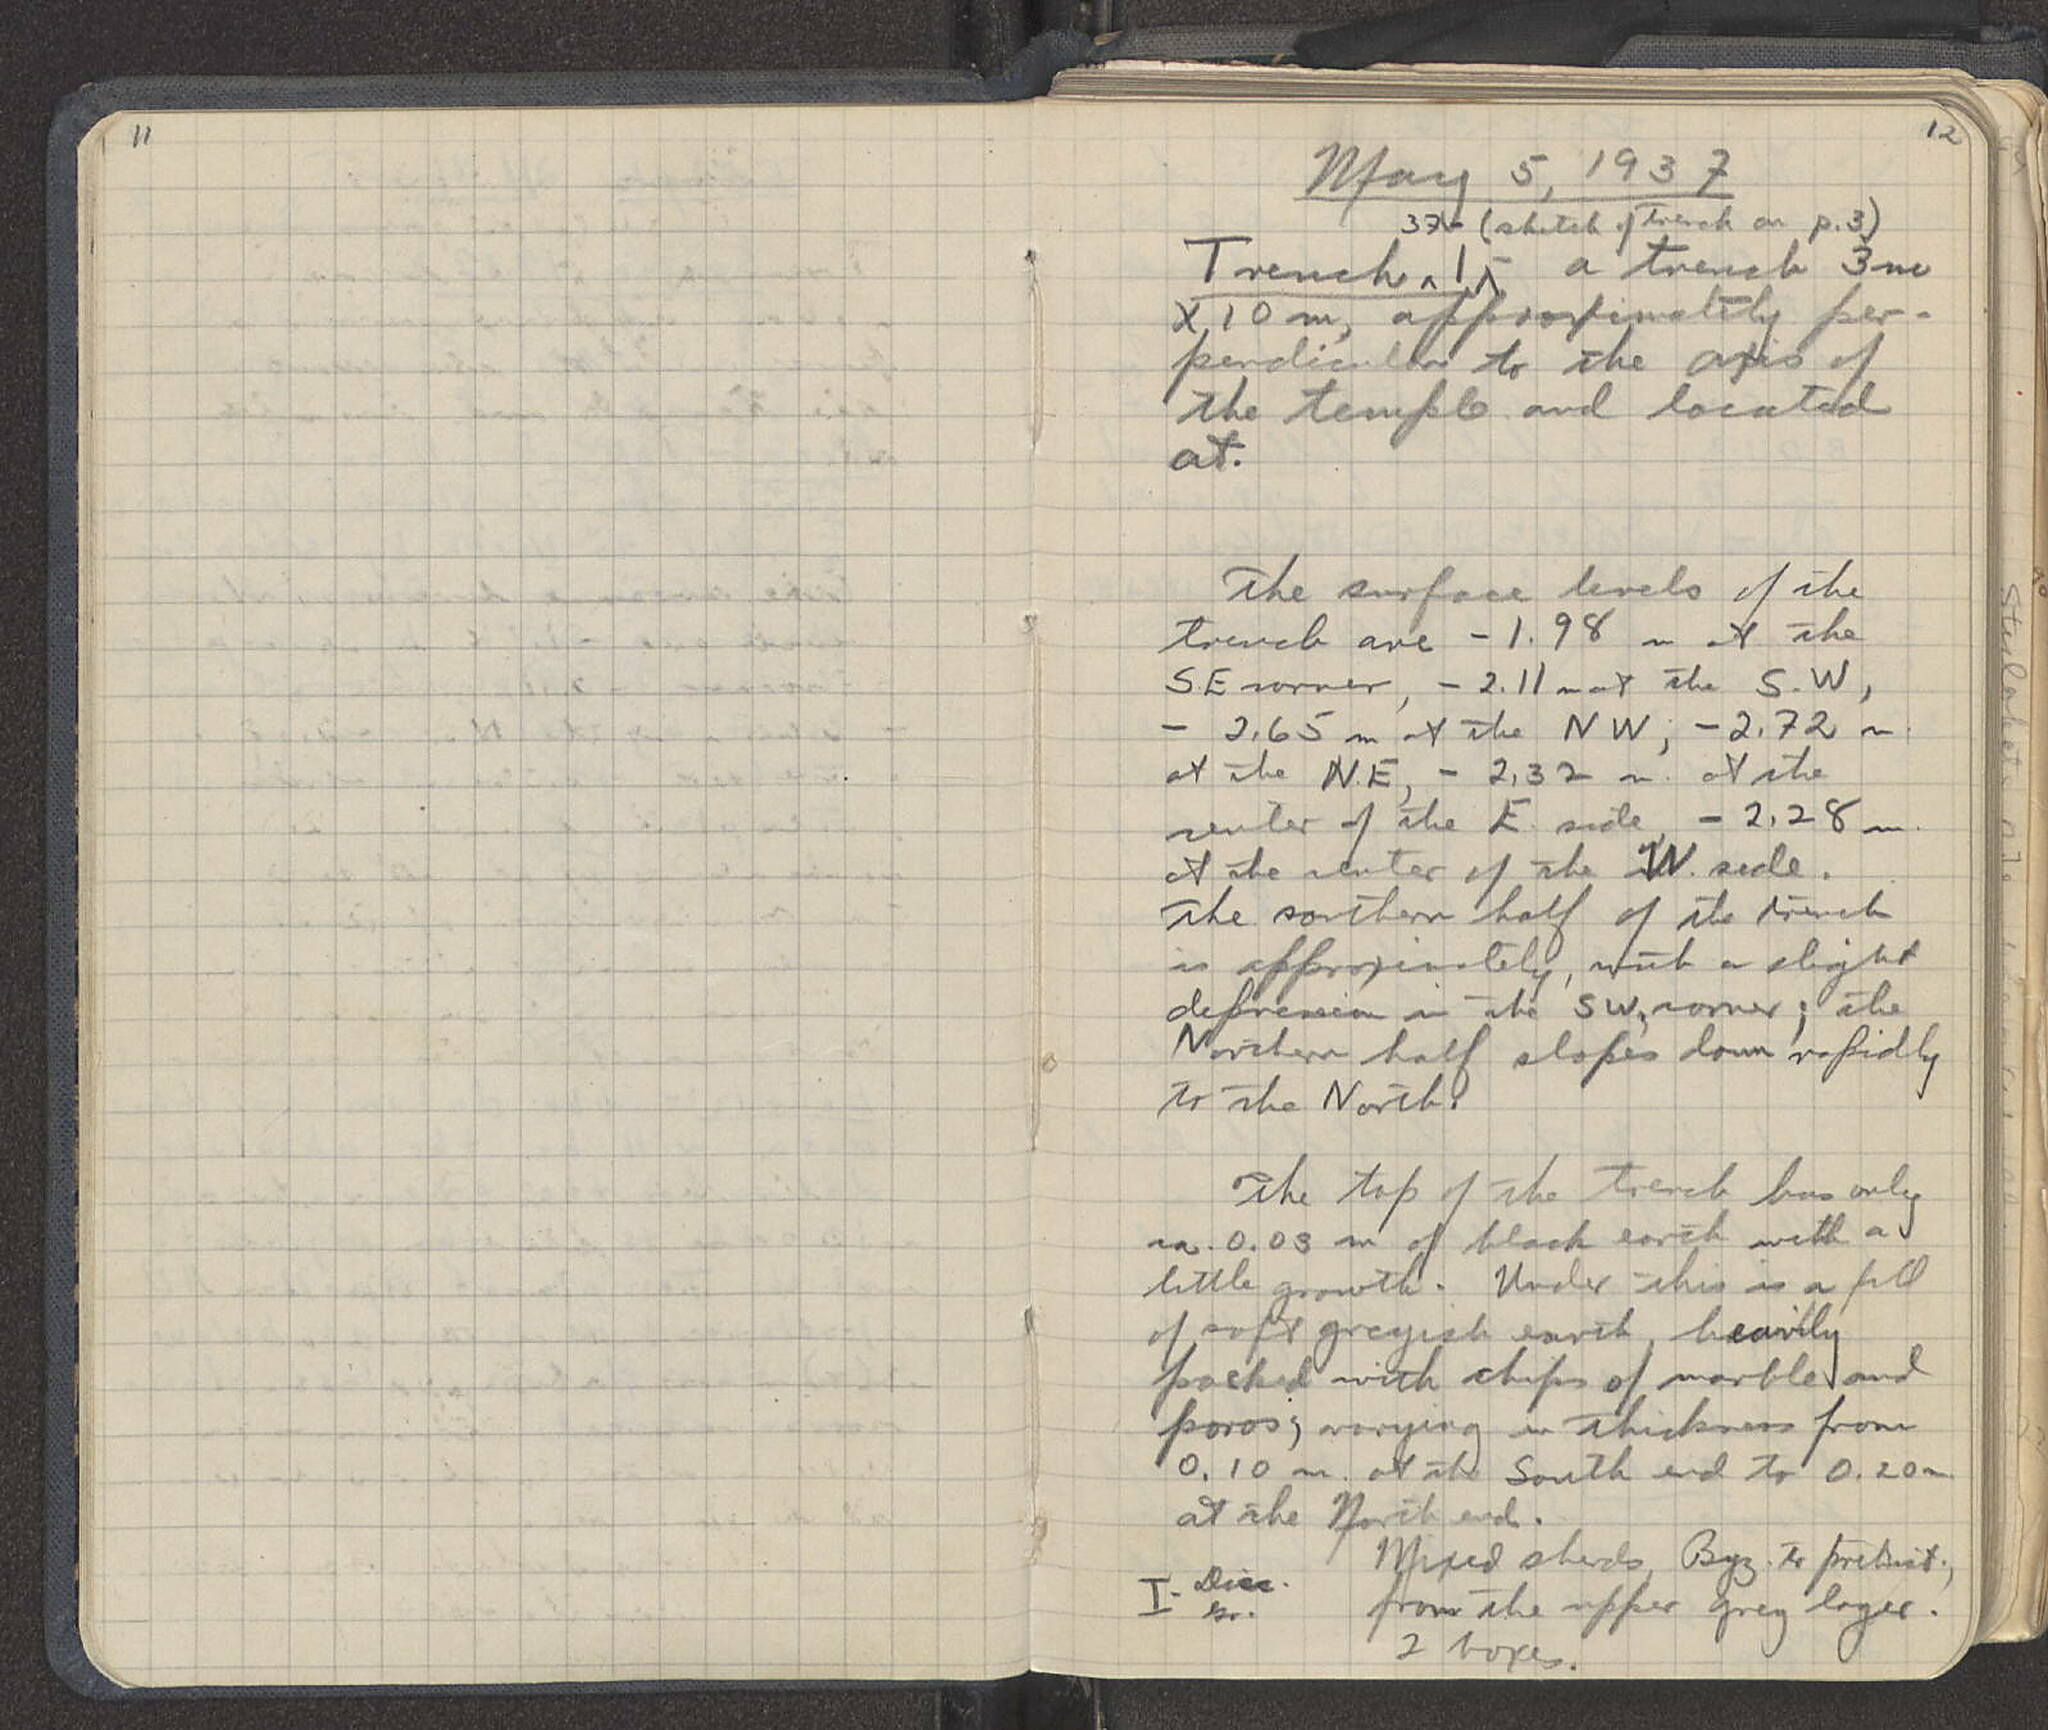 11
12
May 5, 1937
37- (sketch of trench on p. 3)
Trench ^ 1, a trench 3m
x 10 m, approximately per-
pendicular to the axis of
the temple and located
at.
The surface levels of the
trench are - 1.98 m at the
SE corner, - 2.11 m at the S.W,
- 2.65 m at the NW; - 2.72 m.
at the N.E, - 2.32 m. at the
center of the E. side, - 2.28 m.
at the center of the W. side.
The southern half of the trench
is approximately, with a slight
depression in the SW. corner; the
Northern half slopes down rapidly
to the North.
The top of the trench has only
ca. 0.03 m of black earth with a
little growth. Under this is a fill
of soft greyish earth, heavily
packed with chips of marble and
poros; varying in thickness from
0.10 m. at the South end to 0.20 m
at the North end.
Mixed sherds, Byz. to prehist.,
I - Disc.
from the upper grey layer.
2 boxes.